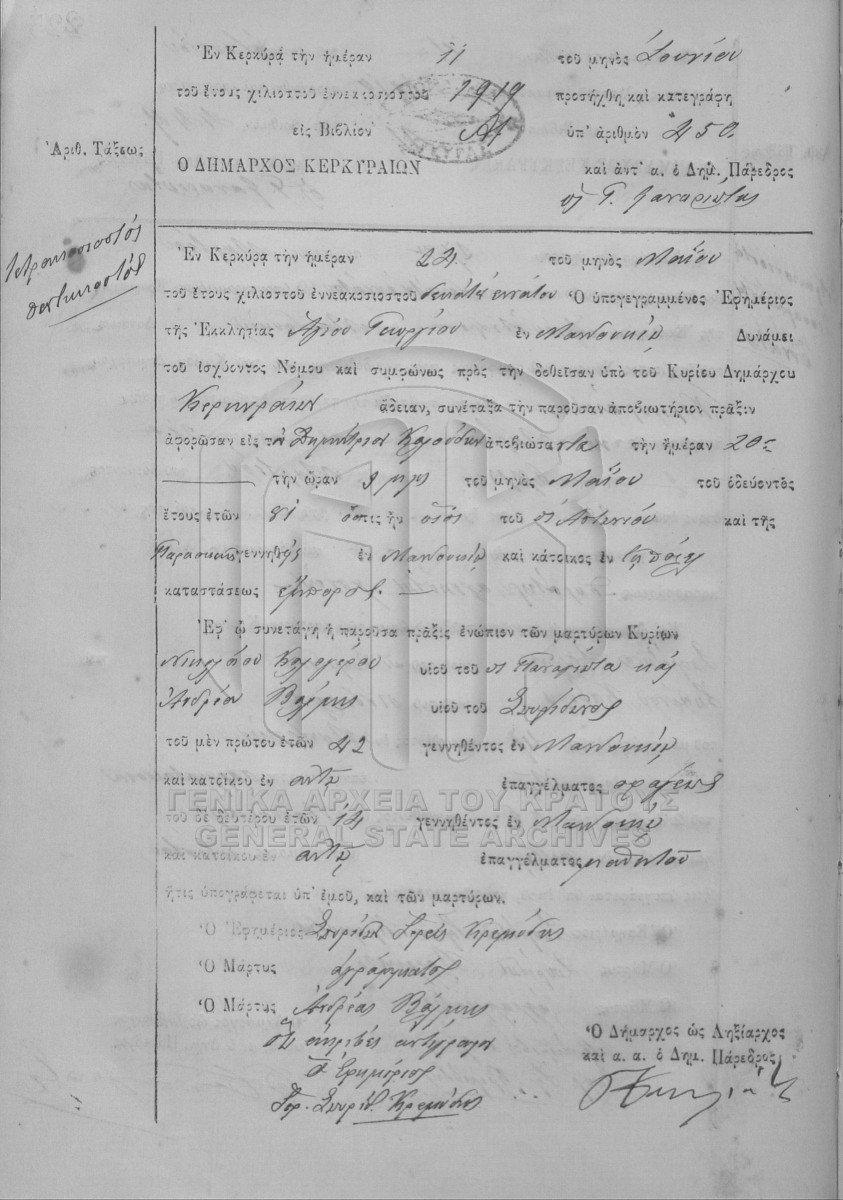 Ἐν Κερκύρᾳ τὴν ἡμέραν 11 τοῦ μηνὸς Ἰουνίου
τοῦ ἔτους χιλιοστοῦ ἐννεακοσιοστοῦ 1919 προσήχθη καὶ κατεγράφη
εἰς Βιβλίον Αʹ ὑπ' ἀριθμὸν 450.
Ἀριθ. Τάξεως
Ο ΔΗΜΑΡΧΟΣ ΚΕΡΚΥΡΑΙΩΝ καὶ ἀντ' α. ὁ Δημ. Πάρεδρος
Τετρακοσιοστὸς
πεντηκοστὸς
Ἐν Κερκύρᾳ τὴν ἡμέραν 24 τοῦ μηνὸς Μαΐου
τοῦ ἔτους χιλιοστοῦ ἐννεακοσιοστοῦ δεκάτου ἐννάτου Ὁ ὑπογεγραμμένος Ἐφημέριος
τῆς Ἐκκλησίας Ἁγίου Γεωργίου ἐν Μανδουκίῳ Δυνάμει
τοῦ ἰσχύοντος Νόμου καὶ συμφώνως πρὸς τὴν δοθεῖσαν ὑπὸ τοῦ Κυρίου Δημάρχου
Κερκυραίων ἄδειαν, συνέταξα τὴν παροῦσαν ἀποβιωτήριον πρᾶξιν
ἀφορῶσαν εἰς τὸν Δημήτριον ἀποβιώσαντα τὴν ἡμέραν 20
τὴν ὥραν 9 μμ τοῦ μηνὸς Μαΐου τοῦ ὁδεύοντος
ἔτους ἐτῶν 81 ὅστις ἦν υἱὸς τοῦ Ἀντωνίου καὶ τῆς
Παρασκευῆς γεννηθεὶς ἐν Μανδουκίῳ καὶ κάτοικος ἐν τῇ πόλει
καταστάσεως ἔμπορος.
Ἐφ' ᾧ συνετάγη ἡ παροῦσα πρᾶξις ἐνώπιον τῶν μαρτύρων Κυρίων
Νικολάου Καλογέρου υἱοῦ τοῦ Παναγιώτα καὶ
Ἀνδρέα Βάρμπη υἱοῦ τοῦ Σπυρίδωνος
τοῦ μὲν πρώτου ἐτῶν 42 γεννηθέντος ἐν Μανδουκίῳ
καὶ κατοίκου ἐν αὐτῷ ἐπαγγέλματος σφαγέως
τοῦ δὲ δευτέρου ἐτῶν γεννηθέντος ἐν Μανδουκίῳ
καὶ κατοίκου ἐν αὐτῷ ἐπαγγέλματος
ἥτις ὑπογράφεται ὑπ' ἐμοῦ, καὶ τῶν μαρτύρων.
Ὁ Ἐφημέριος Σπυρίδων Ἱερεὺς Κρεμύδης
Ὁ Μάρτυς ἀγράμματος
Ὁ Μάρτυς Ἀνδρέας Βάρμπης
ἀκριβὲς ἀντίγραφον
Ὁ Ἐφημέριος
Ἱερ. Σπυρίδ. Κρεμύδης
Ὁ Δήμαρχος ὡς Ληξίαρχος
καὶ α. α. ὁ Δημ. Πάρεδρος
ΓΕΝΙΚΑ ΑΡΧΕΙΑ ΤΟΥ ΚΡΑΤΟΥΣ
GENERAL STATE ARCHIVES